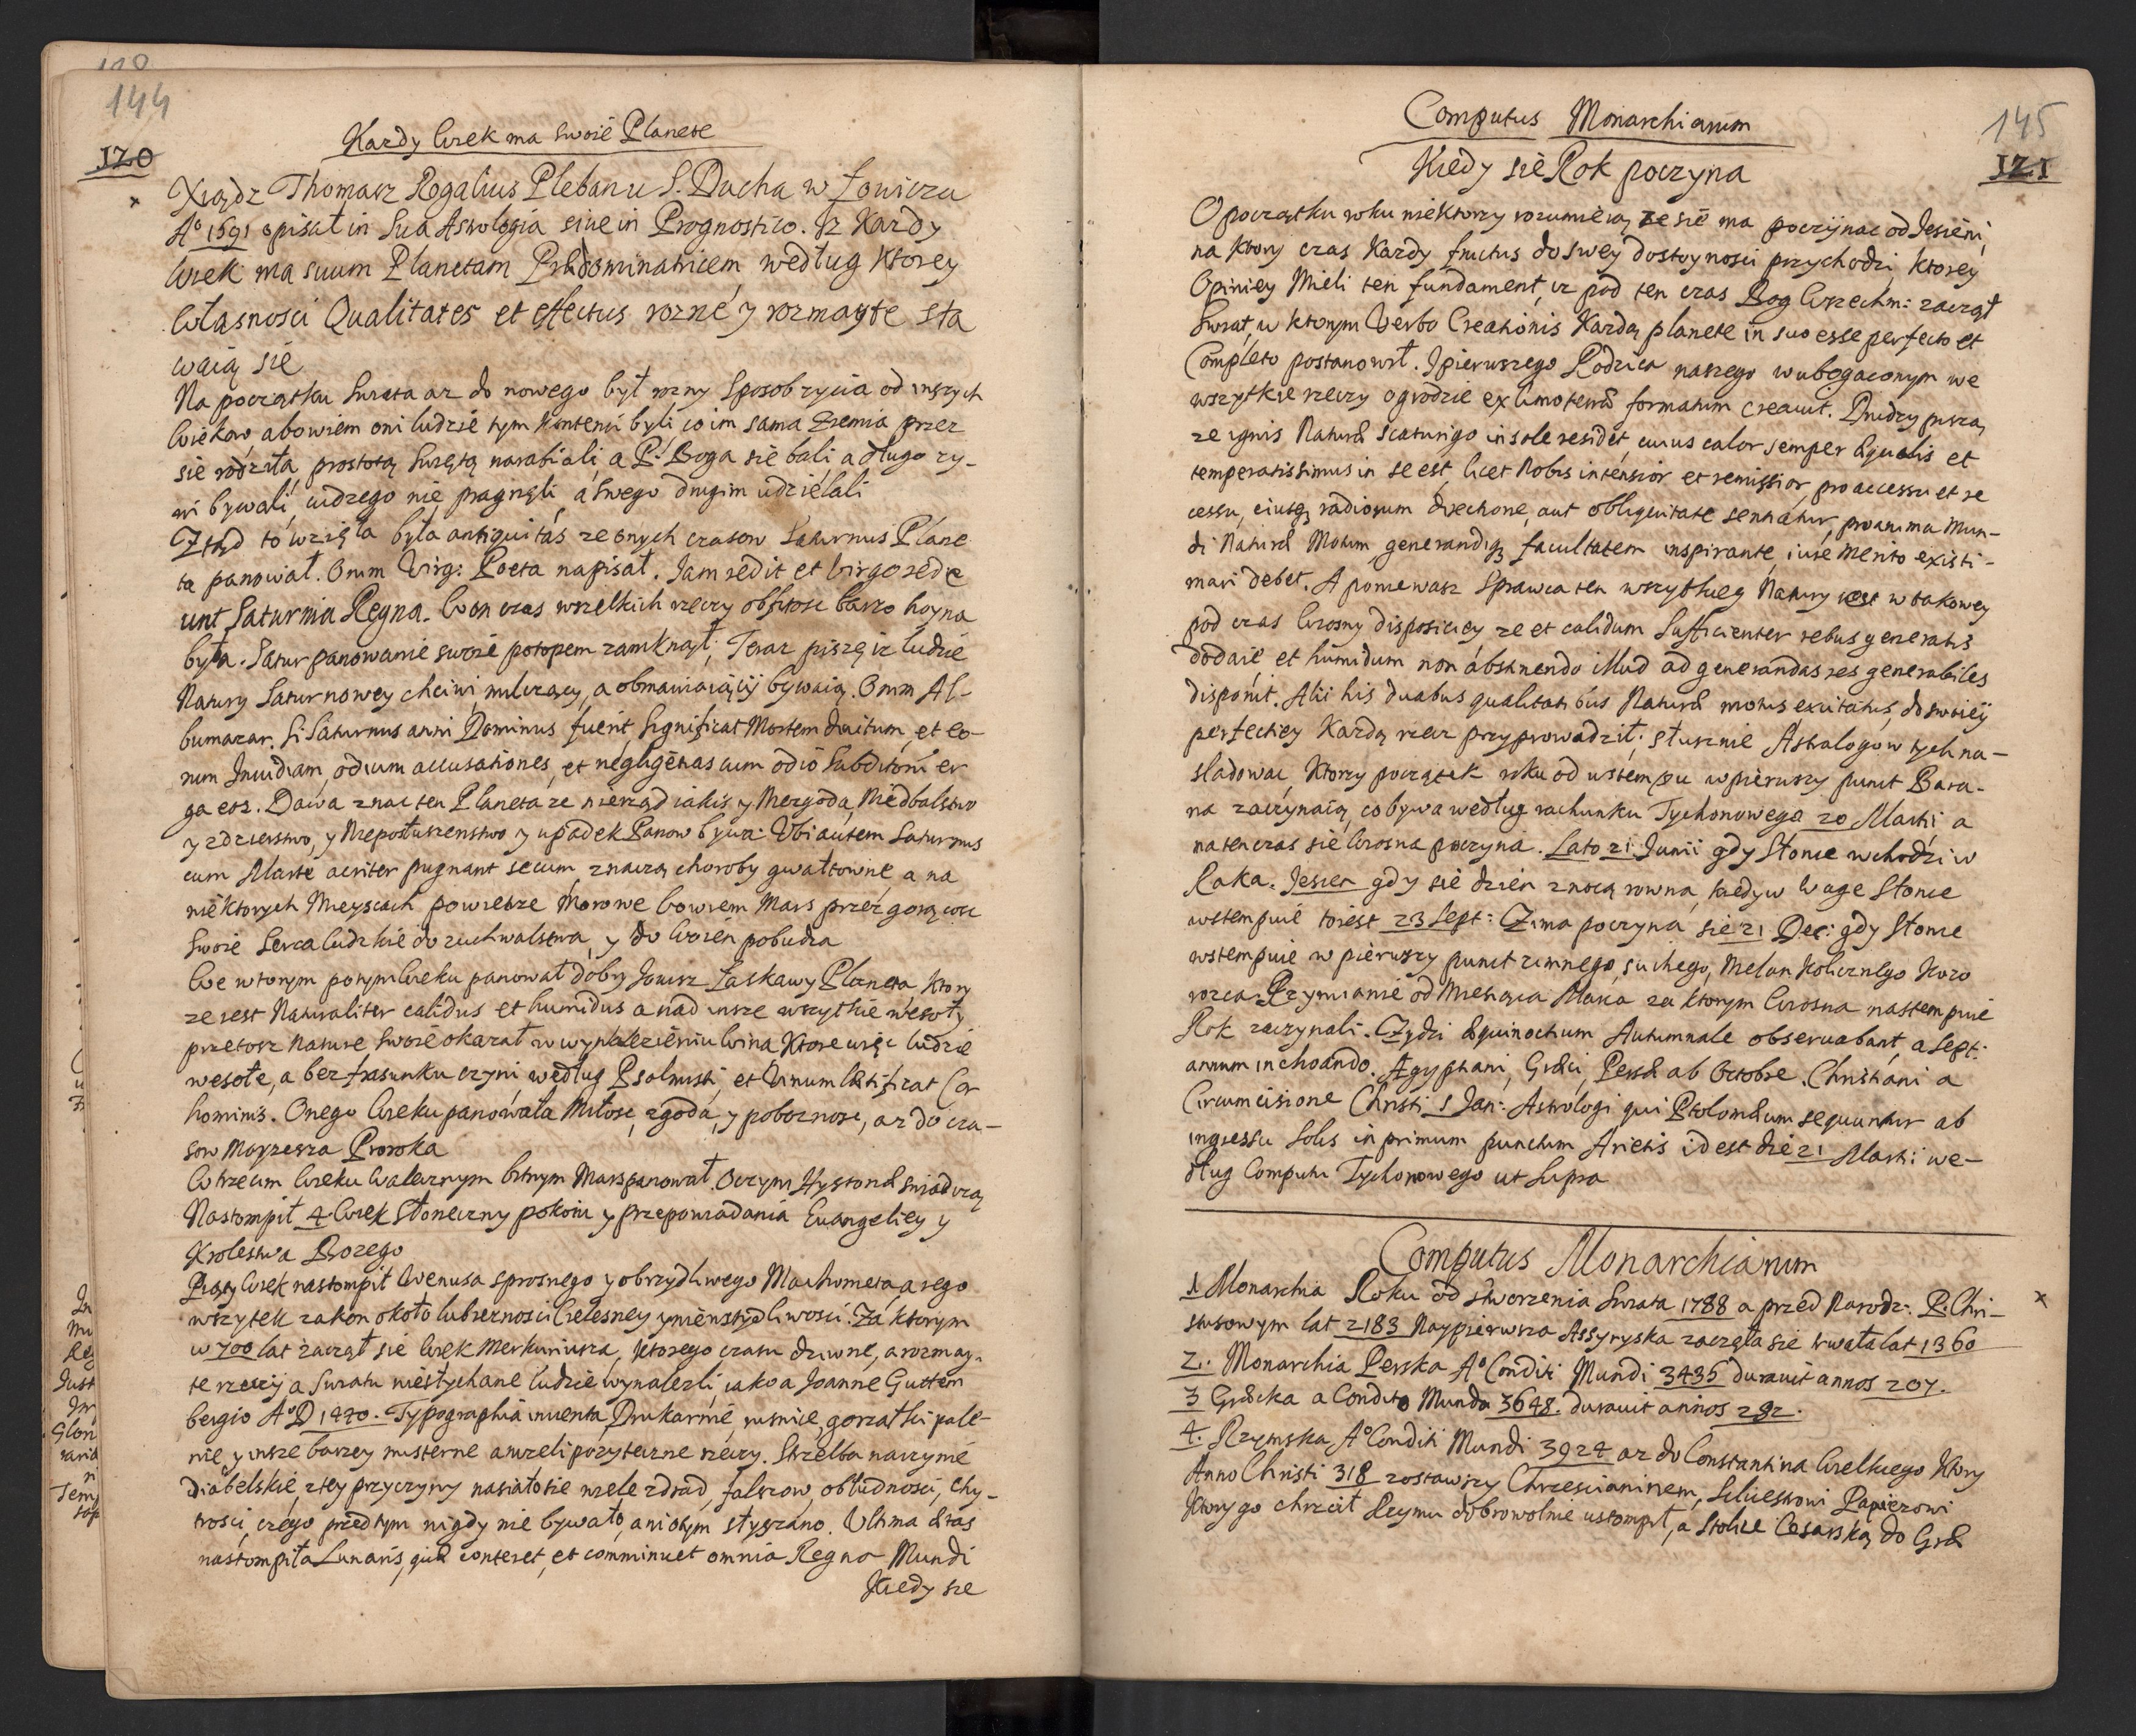 144
120
Kazdy Wiek ma swoię Planetę
Xiądz Thomasz Rogalius Plebanu S. Ducha w Łowiczu
A° 1691 opisał in Sua Astrologia siue in Prognostico. Iz Kazdy
Wiek ma suum Planetam Prædominatricem, według Ktorey
Własnosci Qualitates et effectus rozne y rozmayte sta
waią się
Na początku Swiata az do nowego był rozny sposob zycia od inszych
Wiekow, abowiem oni ludzie tym Kontenti byli co im sama Ziemia przez
się rodziła, prostotą swiętą narabiali, a P. Boga się bali, a długo zy-
wi bywali, cudzego nie pragnęli, a swego drugim udzielali
Ztąd to wzięła była antiquitas ze onych czasow Saturnus Plane
ta panował. Onim Virg: Poeta napisał. Jam redit et virgo rede
unt Saturnia Regna. Won czas wszelkich rzeczy obfitosc barzo hoyna
była. Satur panowanie swoie potopem zamknął; Teraz piszą iz ludzie
Natury Saturnowey chciwi, milczący, a obmawiaiący bywaią. Onim Al-
bumazar. Si Saturnus anni Dominus fuerit significat Mortem diuitum, et eo-
rum Inuidiam, odium accusationes, et negligentias cum odio Subditorũ er
ga eos. Dawa znac ten Planeta ze nierząd iakis y Niezgoda, Niedbalstwo
y zdzierstwo, y Nieposłuszenstwo y upadek Panow bywa: Ubi autem Saturnus
cum Marte acriter pugnant secum, znaczą choroby gwałtowne, a na
niektorych Mieyscach powietrze Morowe bowiem Mars przez gorącosc
swoię serca ludzkie do zuchwalstwa, y do Woien pobudza
We wtorym potym Wieku panował dobry Jowisz Łaskawy Planeta, ktory
ze iest Naturaliter calidus et humidus a nad insze wszytkie wesoły
przetosz Naturę swoię okazał w wynalezieniu Wina Ktore więc ludzie
wesołe, a bez frasunku czyni według Psalmisti, et Vinum lætificat Cor
hominis. Onego Wieku panowała Miłosc, zgoda, y poboznosc, az do cza-
sow Moyzesza Proroka
W trzecim Wieku Walecznym bitnym Mars panował. Oczym Hystoriæ swiadczą
Nastompił 4. Wiek Słoneczny pokoiu y przepowiadania Euangeliey y
Krolestwa Bozego
Piąty Wiek nastompił Wenusa sprosnego y obrzydliwego Machometa, a iego
wszytek zakon około lubieznosci Cielesney y niewstydliwosci. Za ktorym
w 700 lat zaczął się Wiek Merkuriusza, ktorego czasu dziwne, a rozmay-
te rzeczy a Swiatu niesłychane ludzie wynalezli, iako a Joanne Guttem
bergio A° D 1440. Typographia inuenta, Drukarnie, rusnice, gorzałki pale-
nie, y insze barzey misterne anizeli pozyteczne rzeczy. Strzelba naczynie
diabelskie, z tey przyczyny nasiało się wiele zdrad, falszow, obłudnosci, Chy-
trosci, czego przedtym nigdy nie bywało, ani o tym słyszano. Ultima ætas
nastompiła Lunaris, quæ conteret, et comminuet omnia Regna Mundi
Kiedy się
Computus Monarchiarum
145
121
Kiedy się Rok poczyna
O początku roku niektorzy rozumieią, ze się ma poczynac od Jesieni,
na ktory czas Kazdy fructus do swey dostoynosci przychodzi, Ktorey
Opiniey Mieli ten fundament, iz pod ten czas Bog Wszechm: zaczął
Swiat, w ktorym Verbo Creationis Kazdą planetę in suo esse perfecto et
Completo postanowił. I pierwszego Rodzica naszego w ubogaconym we
wszytkie rzeczy ogrodzie ex limo terræ formatum creauit. Drudzy piszą,
ze ignis Naturæ scaturigo in sole residet, cuius calor semper æqualis et
temperatissimus in se est, licet Nobis intensior et remissior, pro accessu et re
cessu, eiusq; radiorum directione, aut obliquitate sentiatur, pro anima Mun-
di Naturæ Motum, generandiq; facultatem inspirante, iure merito existi-
mari debet. A poniewasz Sprawca ten wszytkiey Natury iest w takowey
pod czas Wiosny disposiciey ze et calidum sufficienter rebus generatis
dodaie et humidum non absumendo illud ad generandas res generabiles
disponit. Alii his duabus qualitatibus Naturæ motus excitatus, do swoiey
perfectiey Kazdą rzecz przyprowadził; słusznie Astrologow tych na-
sladowac, ktorzy początek roku od wstempu w pierwszy punct Bara-
na zaczynaią, co bywa według rachunku Tychonowego 20 Martii, a
na ten czas się Wiosna poczyna. Lato 21 Junii gdy Słonce wchodzi w
Raka. Jesien gdy się dzien z nocą rowna, kiedy w Wagę Słonce
wstempuie toiest 23 Sept: Zima poczyna się 21 Dec: gdy Słonce
wstempuie w pierwszy punct zimnego, suchego, Melankolicznego Kozo
rozca. Rzymianie od Miesiąca Marca za ktorym Wiosna nastempuie
Rok zaczynali. Zydzi Æquinoctium Autumnale obseruabant, a Sept:
annum inchoando. Ægyptiani, Græci, Persæ ab Octobre. Christiani a
Circumcisione Christi 1 Jan: Astrologi qui Ptolomæum sequuntur ab
ingressu Solis in primum punctum Arietis idest die 21 Martii we-
dług Computu Tychonowego ut Supra
Computus Monarchiarum
1 Monarchia Roku od stworzenia Swiata 1788 a przed Narodz: P. Chri-
stusowym lat 2183 Naypierwsza Assyryska zaczęła się trwała lat 1360
2. Monarchia Perska A° Conditi Mundi 3435 durauit annos 207.
3 Græcka a Condito Mundo 3648. durauit annos 282.
4. Rzymska A° Conditi Mundi 3924 az do Constantina Wielkiego Ktory
Anno Christi 318 zostawszy Chrzescianinem, Siluestrowi Papiezowi
ktory go chrzcił Rzymu dobrowolnie ustompił, a Stolicę Cesarską do Græ